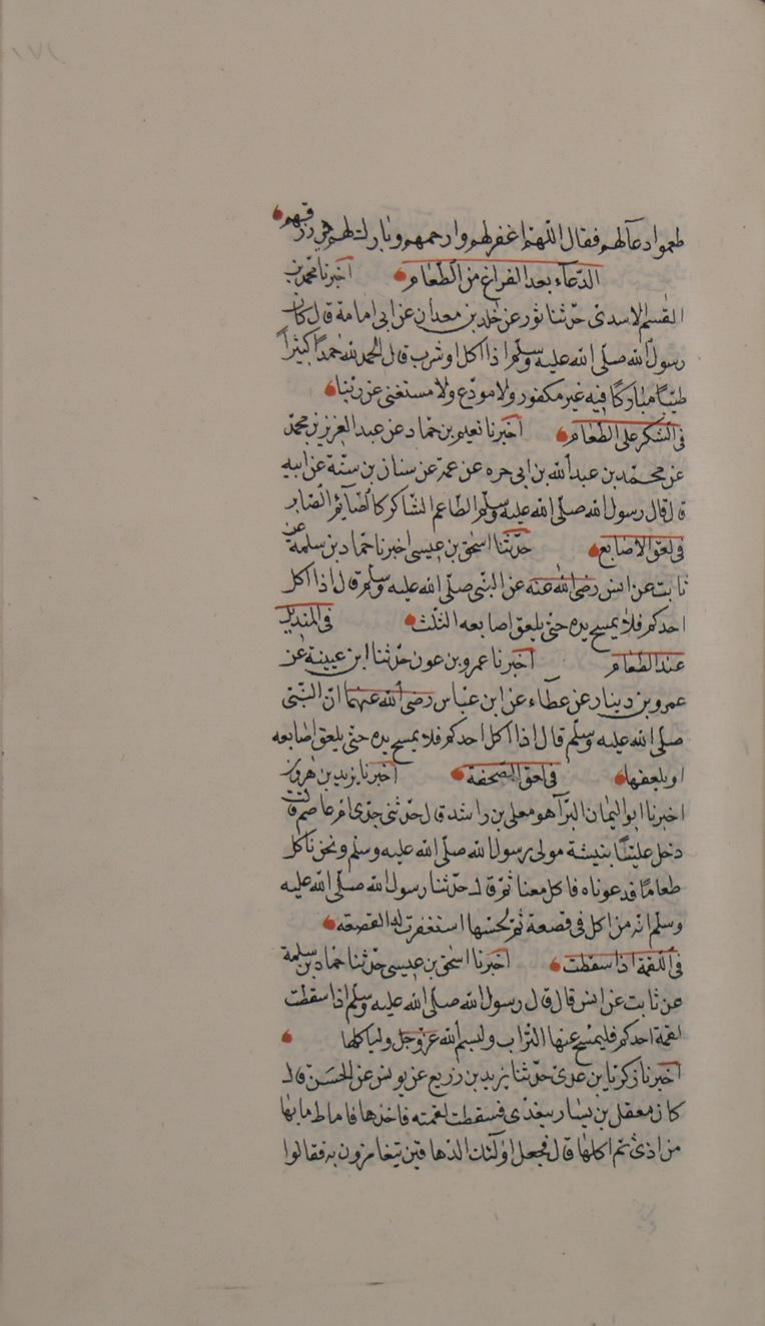 ١٧١
طعموا دعا لهم فقال اللهم اغفر لهم وارحمهم وبارك لهم في رزقهم
الدعاء بعد الفراغ من الطعام اخبرنا محمد بن
القسم الاسدى حدثنا ثور عن خلد بن معدان عن ابى امامة قال كان
رسول الله صلى الله عليه وسلم اذا اكل او شرب قال الحمد لله حمدا كثيرا
طيبا مباركا فيه غير مكفور ولا مودع ولا مستغنى عن ربنا
فى الشكر على الطعام اخبرنا نعيم بن حماد عن عبد العزيز بن محمد
عن محمد بن عبد الله بن ابى حره عن عمه عن سنان بن سنة عن ابيه
قال قال رسول الله صلى الله عليه وسلم الطاعم الشاكر كالصائم الصابر
فى لعق الاصابع حدثنا اسحق بن عيسى اخبرنا حماد بن سلمة عن
ثابت عن انس رضى الله عنه عن النبى صلى الله عليه وسلم قال اذا اكل
احدكم فلا يمسح يده حتى يلعق اصابعه الثلث فى المنديل
عند الطعام اخبرنا عمرو بن عون حدثنا ابن عيينة عن
عمرو بن دينار عن عطاء عن ابن عباس رضى الله عنهما ان النبى
صلى الله عليه وسلم قال اذا اكل احدكم فلا يمسح يده حتى يلعق اصابعه
او يلعقها فى لعق الصحفة اخبرنا يزيد بن هرون
اخبرنا ابو اليمان البرآ هو معلى بن راشد قال حدثنى جدتى ام عاصم قالت
دخل علينا نبيشة مولى رسول الله صلى الله عليه وسلم ونحن ناكل
طعاما فدعوناه فاكل معنا ثم قال حدثنا رسول الله صلى الله عليه
وسلم انه من اكل فى قصعة ثم لحسها استغفرت له القصعة
فى اللقمة اذا سقطت اخبرنا اسحق بن عيسى حدثنا حماد بن سلمة
عن ثابت عن انس قال قال رسول الله صلى الله عليه وسلم اذا سقطت
لقمة احدكم فليمسح عنها التراب وليسم الله عز وجل ولياكلها
اخبرنا زكريا بن عدى حدثنا يزيد بن زريع عن يونس عن الحسن قال
كان معقل بن يسار يتغدى فسقطت لقمته فاخذها فاماط ما بها
من اذى ثم اكلها قال فجعل اولئك الدهاقين يتغامزون به فقالوا